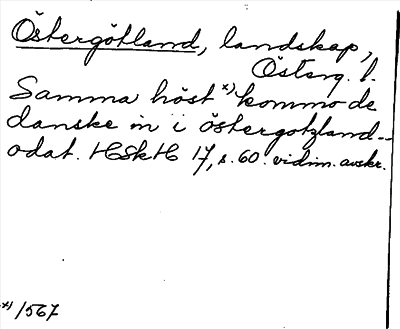 Östergötland, landskap,
Österg. l.
Samma höst x) kommo de
danske in i östergotzland--
odat. HSkH 17, s. 60. vidim. avskr.
x) /567